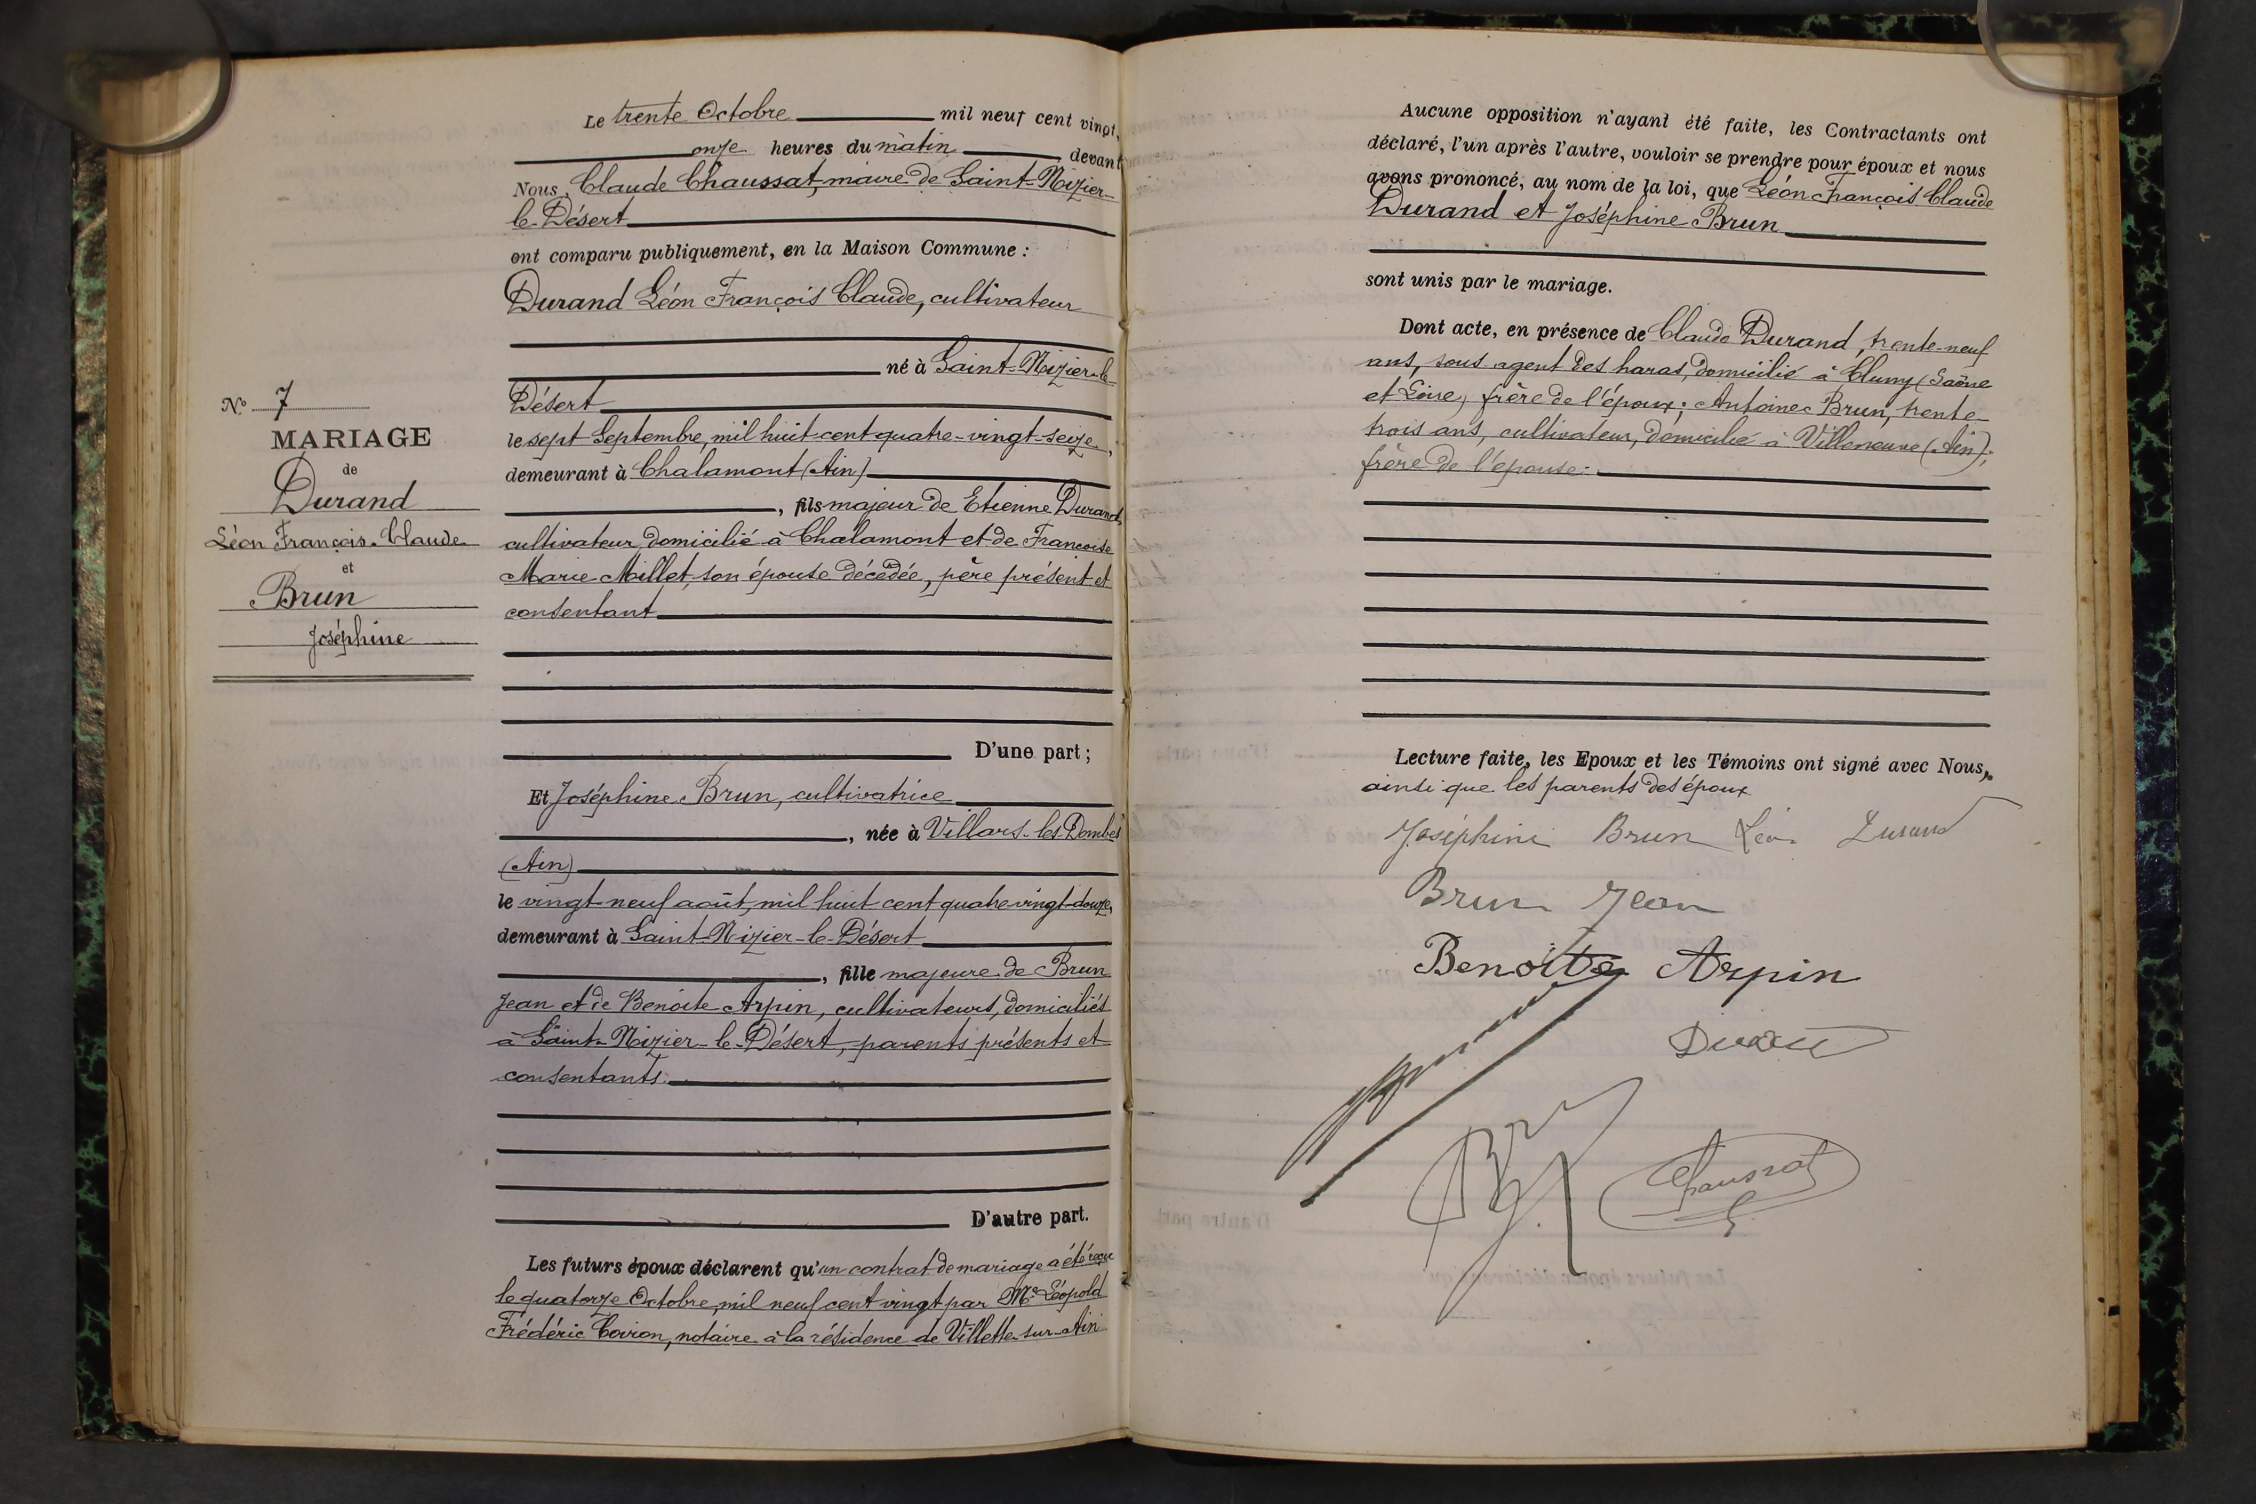 N.º 7
MARIAGE
de
Durand
Léon François Claude
et
Brun
Joséphine
Le trente Octobre mil neuf cent vingt,
onze heures du matin devant
Nous, Claude Chaussat, maire de Saint-Nizier-
le-Désert
ont comparu publiquement, en la Maison Commune :
Durand Léon François Claude, cultivateur
né à Saint-Nizier-le-
Désert
le sept Septembre, mil huit-cent quatre-vingt-seize,
demeurant à Chalamont (Ain)
, fils majeur de Etienne Durand,
cultivateur, domicilié à Chalamont et de Françoise
Marie Millet, son épouse décédée, père présent et
consentant
D'une part ;
Et Joséphine Brun, cultivatrice
, née à Villars-les-Dombes
(Ain)
le vingt-neuf août, mil huit cent quatre vingt-douze,
demeurant à Saint-Nizier-le-Désert
, fille majeure de Brun
Jean et de Benoite Arpin, cultivateurs, domiciliés
à Saint-Nizier-le-Désert, parents présents et
consentants.
D'autre part.
Les futurs époux déclarent qu'un contrat de mariage a été reçu
le quatorze Octobre, mil neuf cent vingt par Me Léopold
Frédéric Coiron, notaire à la résidence de Villette-sur-Ain
Aucune opposition n'ayant été faite, les Contractants ont
déclaré, l'un après l'autre, vouloir se prendre pour époux et nous
avons prononcé, au nom de la loi, que Léon François Claude
Durand et Joséphine Brun
sont unis par le mariage.
Dont acte, en présence de Claude Durand, trente-neuf
ans, sous agent des haras, domicilié à Cluny (Saône
et Loire), frère de l'époux ; Antoine Brun, trente
trois ans, cultivateur, domicilié à Villeneuve (Ain),
frère de l'épouse.
Lecture faite, les Epoux et les Témoins ont signé avec Nous,
ainsi que les parents des époux
Joséphine Brun Léon Durand
Brun Jean
Benoîte Arpin
Durand
Brun
Chaussat